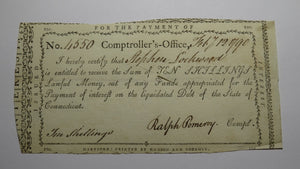 FOR THE PAYMENT OF
No. 4550 Comptroller's-Office, Feb. 12 1790
I hereby certify that Stephen Lockwood
is entitled to receive the Sum of TEN SHILLINGS
Lawful Money, out of any Monies appropriated for the
Payment of interest on the liquidated Debt of the State of
Connecticut.
Ten Shillings
Ralph Pomeroy Compt.
HARTFORD: PRINTED BY HUDSON AND GOODWIN.